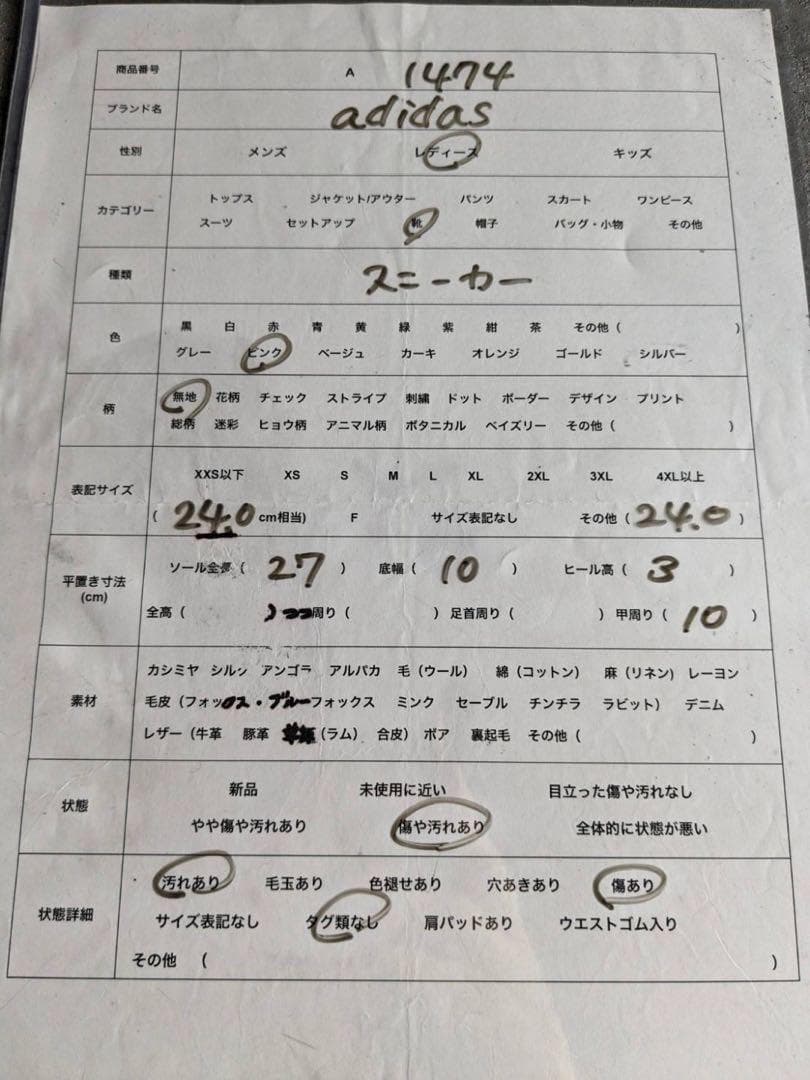 商品番号 A 1474
ブランド名 adidas
性別 メンズ レディース キッズ
カテゴリー
トップス ジャケット/アウター パンツ スカート ワンピース
スーツ セットアップ 靴 帽子 バッグ・小物 その他
種類 スニーカー
色
黒 白 赤 青 黄 緑 紫 紺 茶 その他 ( )
グレー ピンク ベージュ カーキ オレンジ ゴールド シルバー
柄
無地 花柄 チェック ストライプ 刺繍 ドット ボーダー デザイン プリント
総柄 迷彩 ヒョウ柄 アニマル柄 ボタニカル ペイズリー その他 ( )
表記サイズ
XXS以下 XS S M L XL 2XL 3XL 4XL以上
( 24.0 cm相当) F サイズ表記なし その他 ( 24.0 )
平置き寸法
(cm)
ソール全長 ( 27 ) 底幅 ( 10 ) ヒール高 ( 3 )
全高 ( ) つつ周り ( ) 足首周り ( ) 甲周り ( 10 )
素材
カシミヤ シルク アンゴラ アルパカ 毛 (ウール) 綿 (コットン) 麻 (リネン) レーヨン
毛皮 (フォックス・ブルーフォックス ミンク セーブル チンチラ ラビット) デニム
レザー (牛革 豚革 (ラム) 合皮) ボア 裏起毛 その他 ( )
状態
新品 未使用に近い 目立った傷や汚れなし
やや傷や汚れあり 傷や汚れあり 全体的に状態が悪い
状態詳細
汚れあり 毛玉あり 色褪せあり 穴あきあり 傷あり
サイズ表記なし タグ類なし 肩パッドあり ウエストゴム入り
その他 ( )